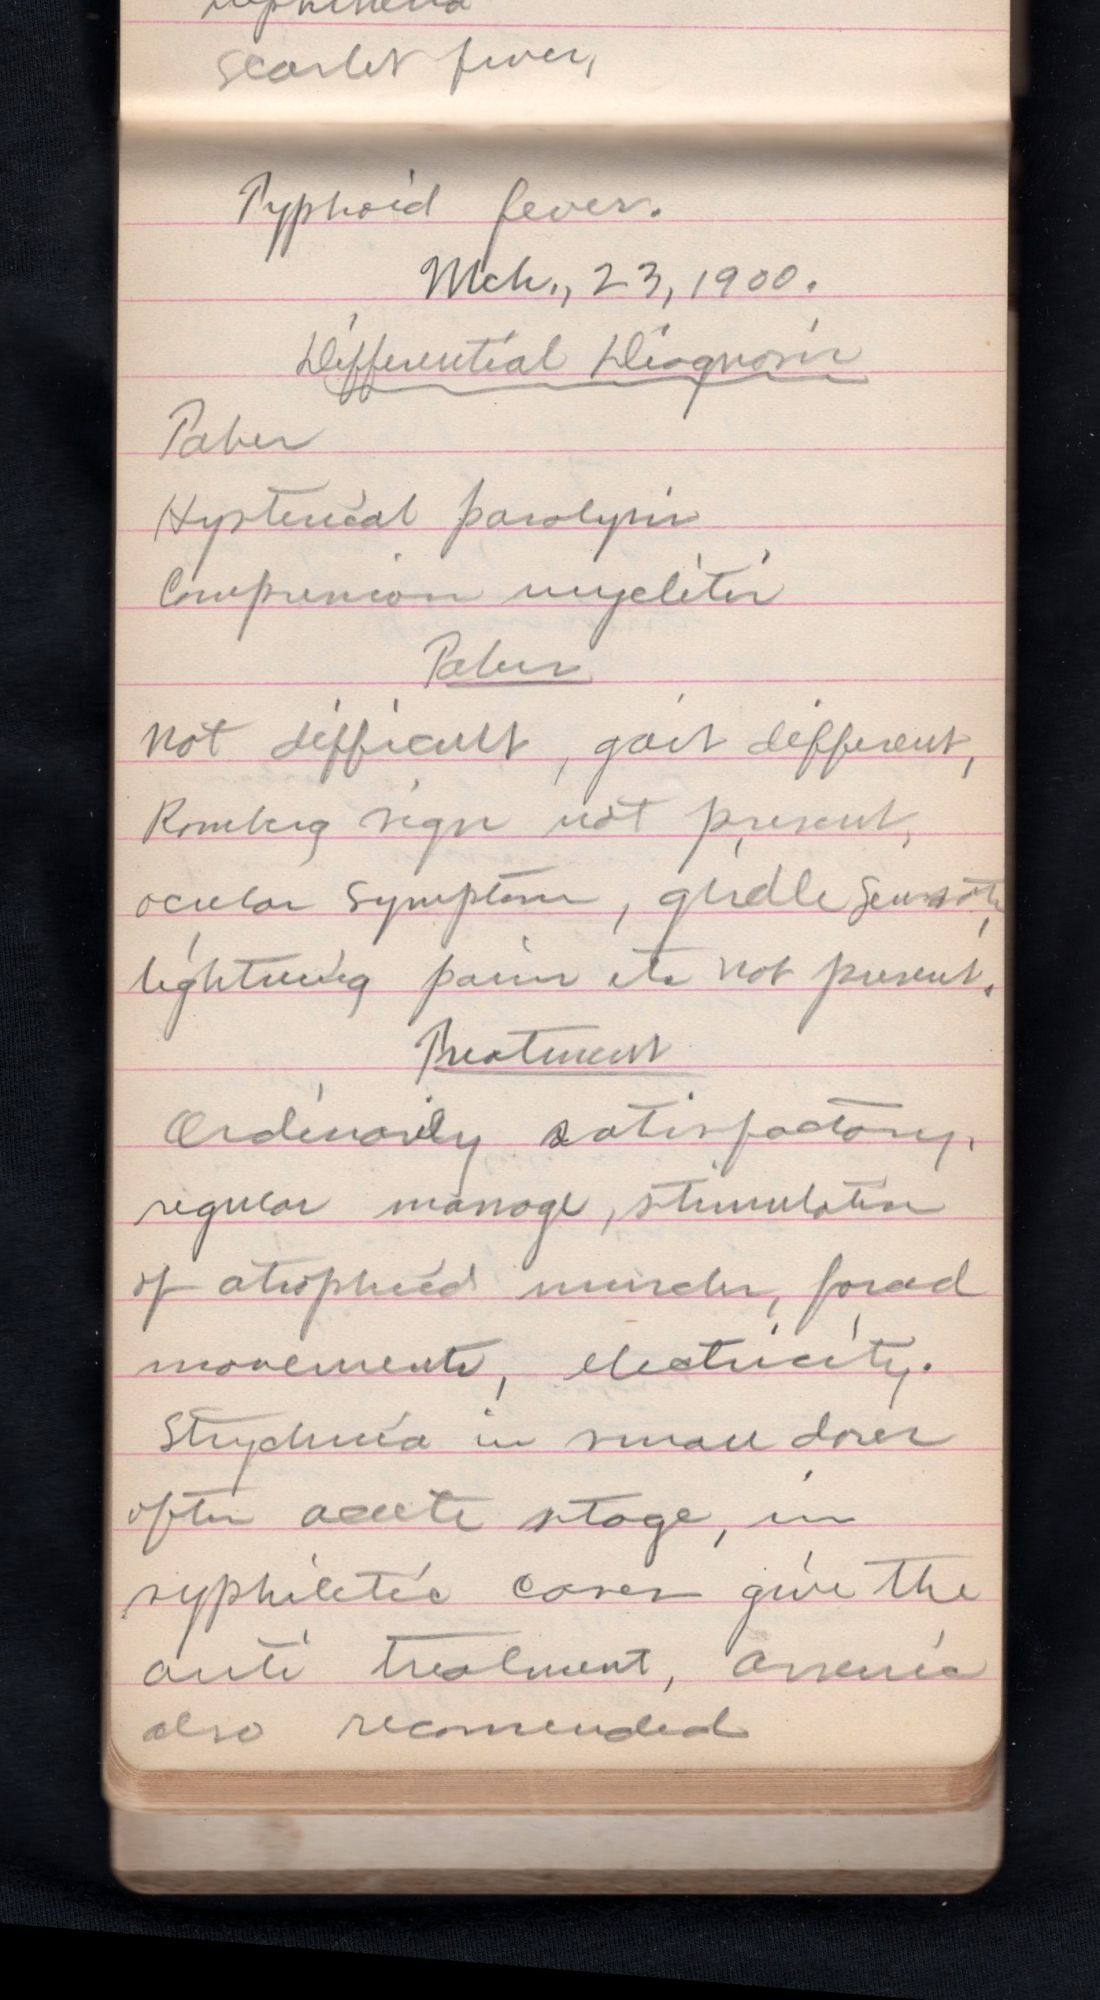 Scarlet fever,
Typhoid fever.
Mch., 23, 1900.
Differential Diagnosis
Tabes
Hysterical paralysis
Compression myelitis
Tabes
Not difficult, gait different,
Romberg sign not present,
ocular symptoms, girdle
lightning pains etc not present.
Treatment
Ordinarily satisfactory,
regular massage, stimulation
of atrophied muscles, forced
movements, electricity.
Strychnia in small doses
after acute stage, in
syphiletic cases give the
anti treatment, arsenic
also recomended